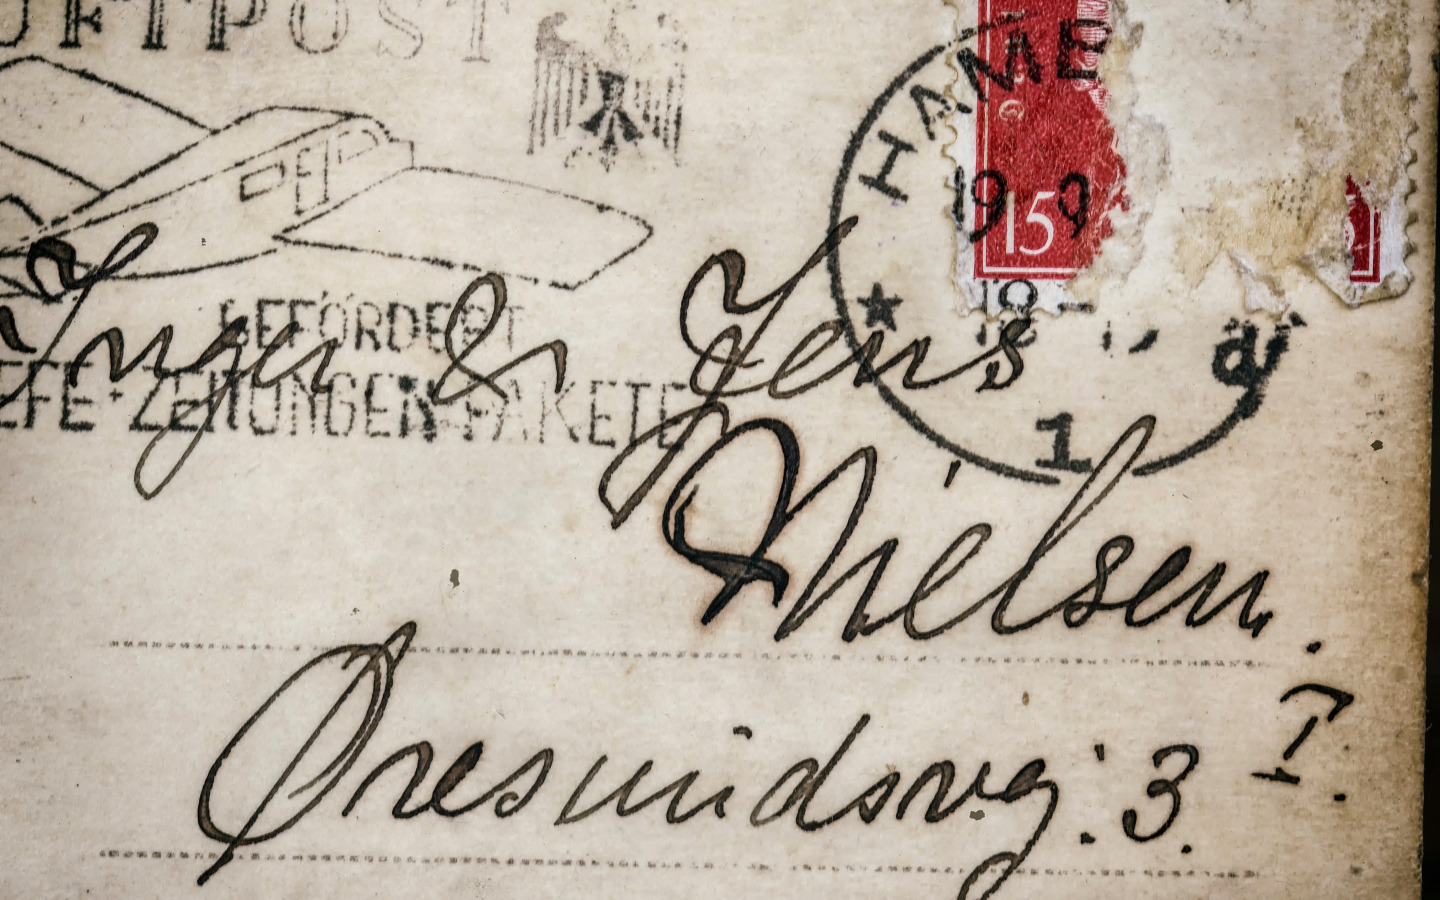 LUFTPOST
HAMB
19
15
BEFÖRDERT
EFE-ZEITUNGEN-PAKETE
18 -
a
1
Inger & Jens
Nielsen.
Øresundsvej. 3. I.